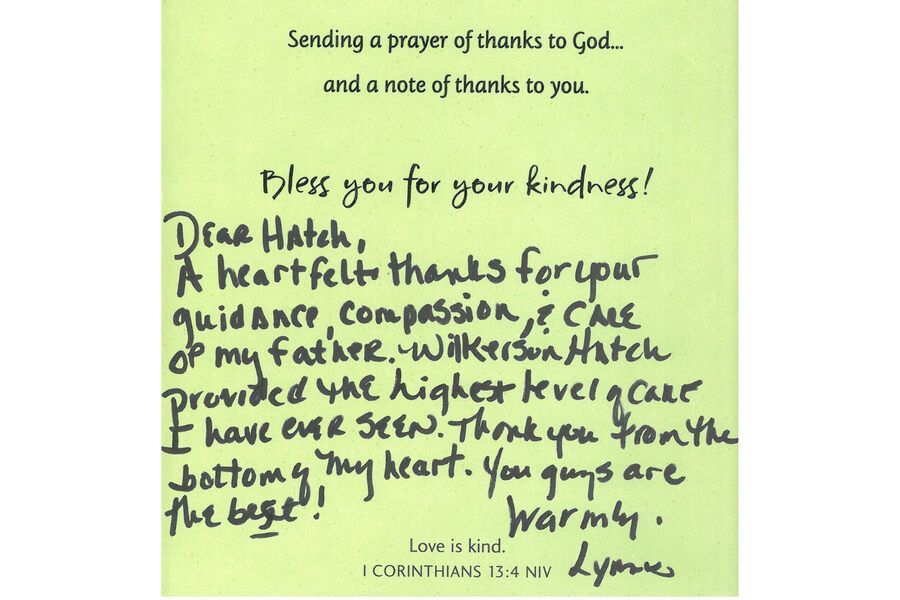 Sending a prayer of thanks to God...
and a note of thanks to you.
Bless you for your kindness!
Dear Hatch,
A heartfelt thanks for your
guidance, compassion, & care
of my father. Wilkerson Hatch
provided the highest level of care
I have ever seen. Thank you from the
bottom of my heart. You guys are
the best! Warmly.
Love is kind.
I CORINTHIANS 13:4 NIV